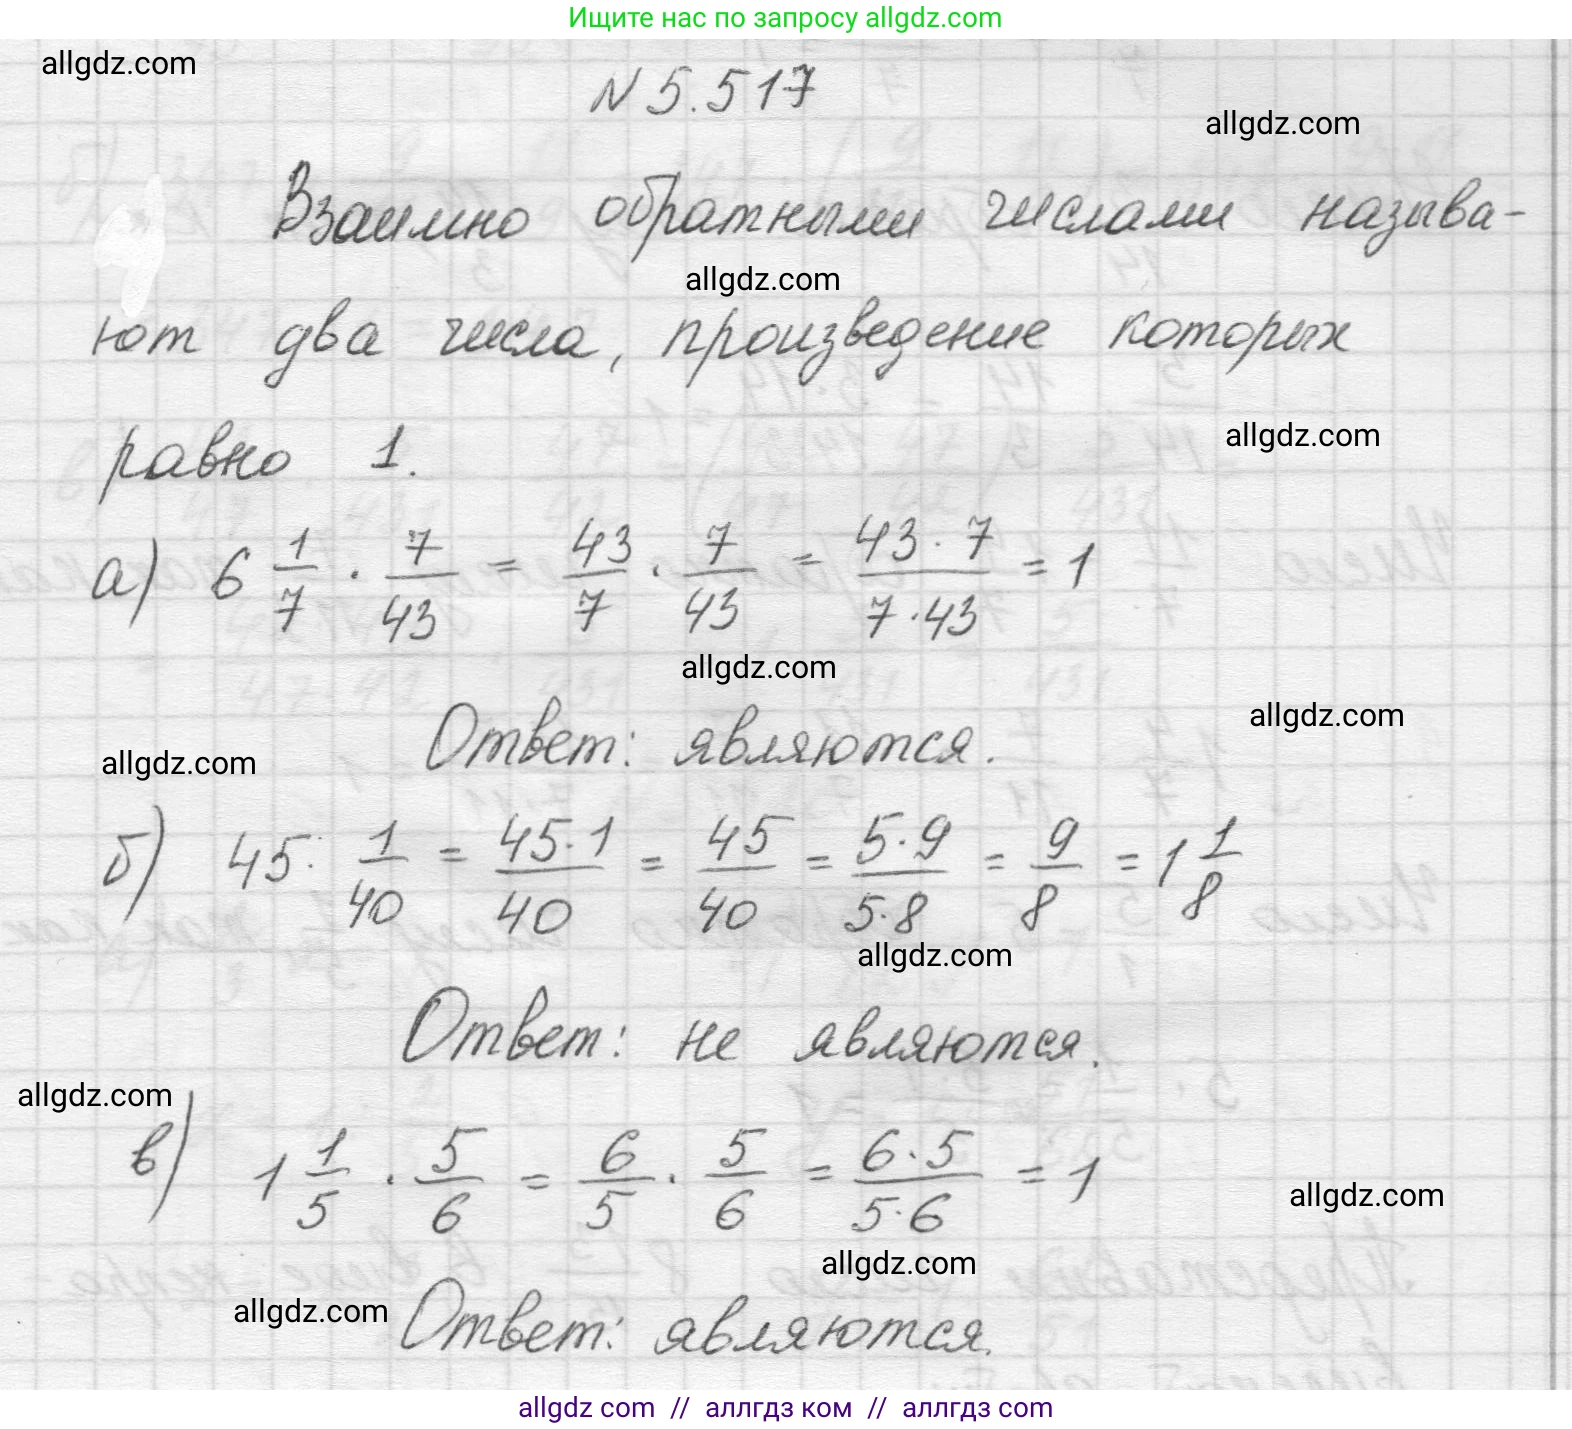 Ищите нас по запросу allgdz.com
allgdz.com
N 5.517
allgdz.com
Взаимно обратными числами называ-
allgdz.com
ют два числа, произведение которых
allgdz.com
равно 1.
а) 6 1/7 · 7/43 = 43/7 · 7/43 = 43·7/7·43 = 1
allgdz.com
allgdz.com
Ответ: являются.
allgdz.com
б) 45 · 1/40 = 45·1/40 = 45/40 = 5·9/5·8 = 9/8 = 1 1/8
allgdz.com
Ответ: не являются.
allgdz.com
в) 1 1/5 · 5/6 = 6/5 · 5/6 = 6·5/5·6 = 1
allgdz.com
allgdz.com
allgdz.com
Ответ: являются.
allgdz com // аллгдз ком // аллгдз com